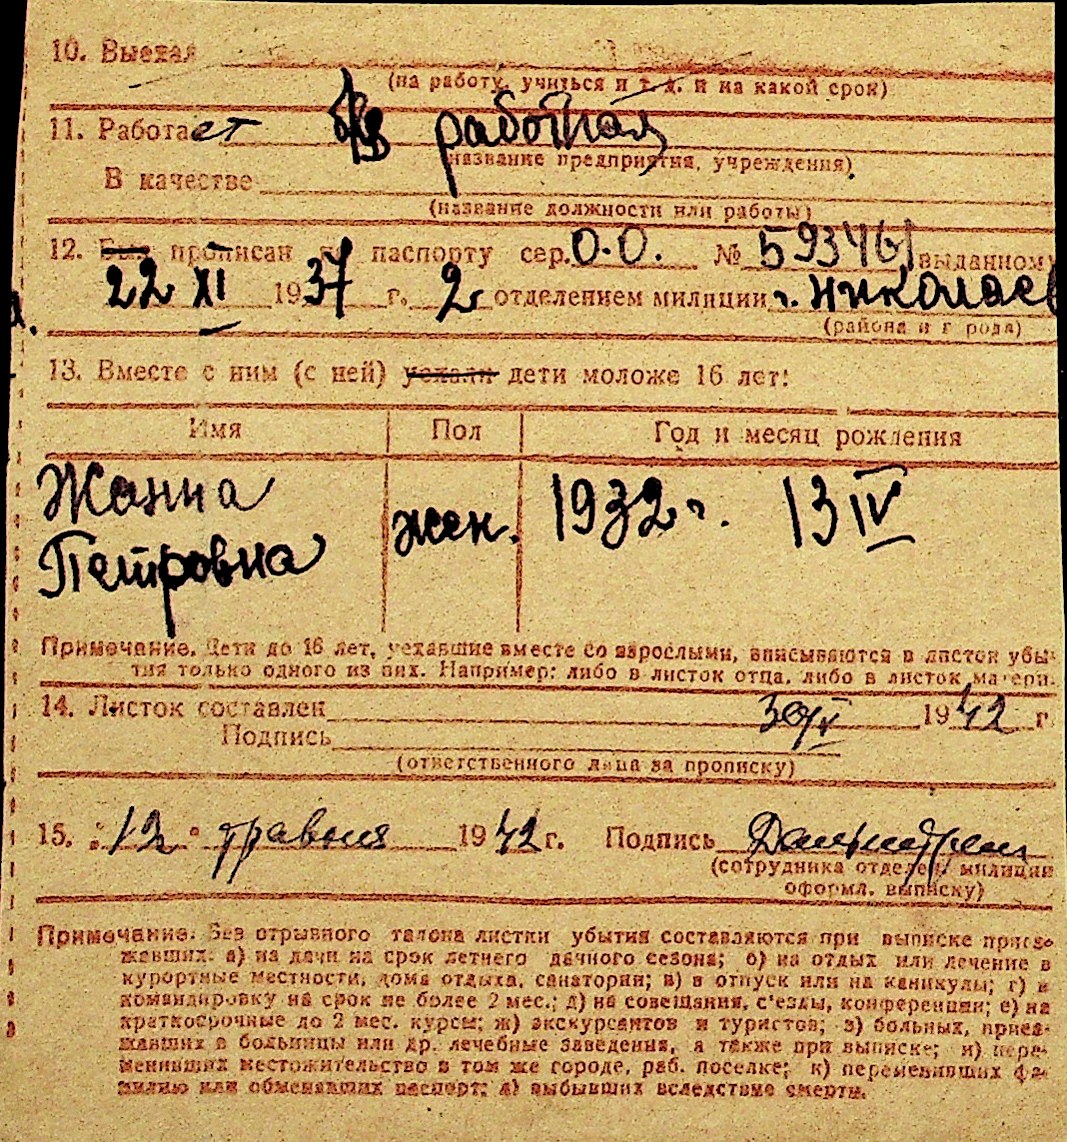 10. Выехал
(на работу, учиться и т. д. и на какой срок)
11. Работает работал
(название предприятия, учреждения)
В качестве
(название должности или работы)
12. Был прописан по паспорту сер. О.О. № 593461 выданному
22 XI 1937 г. 2 отделением милиции г. Николаев
(района и города)
13. Вместе с ним (с ней) уехали дети моложе 16 лет:
Имя Пол Год и месяц рождения
Жанна
Петровна жен. 1932 г. 13 IV
Примечание. Дети до 16 лет, уехавшие вместе со взрослыми, вписываются в листок убы-
тия только одного из них. Например: либо в листок отца, либо в листок матери.
14. Листок составлен 30/IV 1942 г.
Подпись
(ответственного лица за прописку)
15. "12" травня 1942 г. Подпись
(сотрудника отделен. милиции
оформл. выписку)
Примечание. Без отрывного талона листки убытия составляются при выписке приез-
жавших: а) на дачи на срок летнего дачного сезона; б) на отдых или лечение в
курортные местности, дома отдыха, санатории; в) в отпуск или на каникулы; г) в
командировку на срок не более 2 мес.; д) на совещания, с'езды, конференции; е) на
краткосрочные до 2 мес. курсы; ж) экскурсантов и туристов; з) больных, приез-
жавших в больницы или др. лечебные заведения, а также при выписке; и) пере-
менивших местожительство в том же городе, раб. поселке; к) переменивших фа-
милию или обменявших паспорт; л) выбывших вследствие смерти.